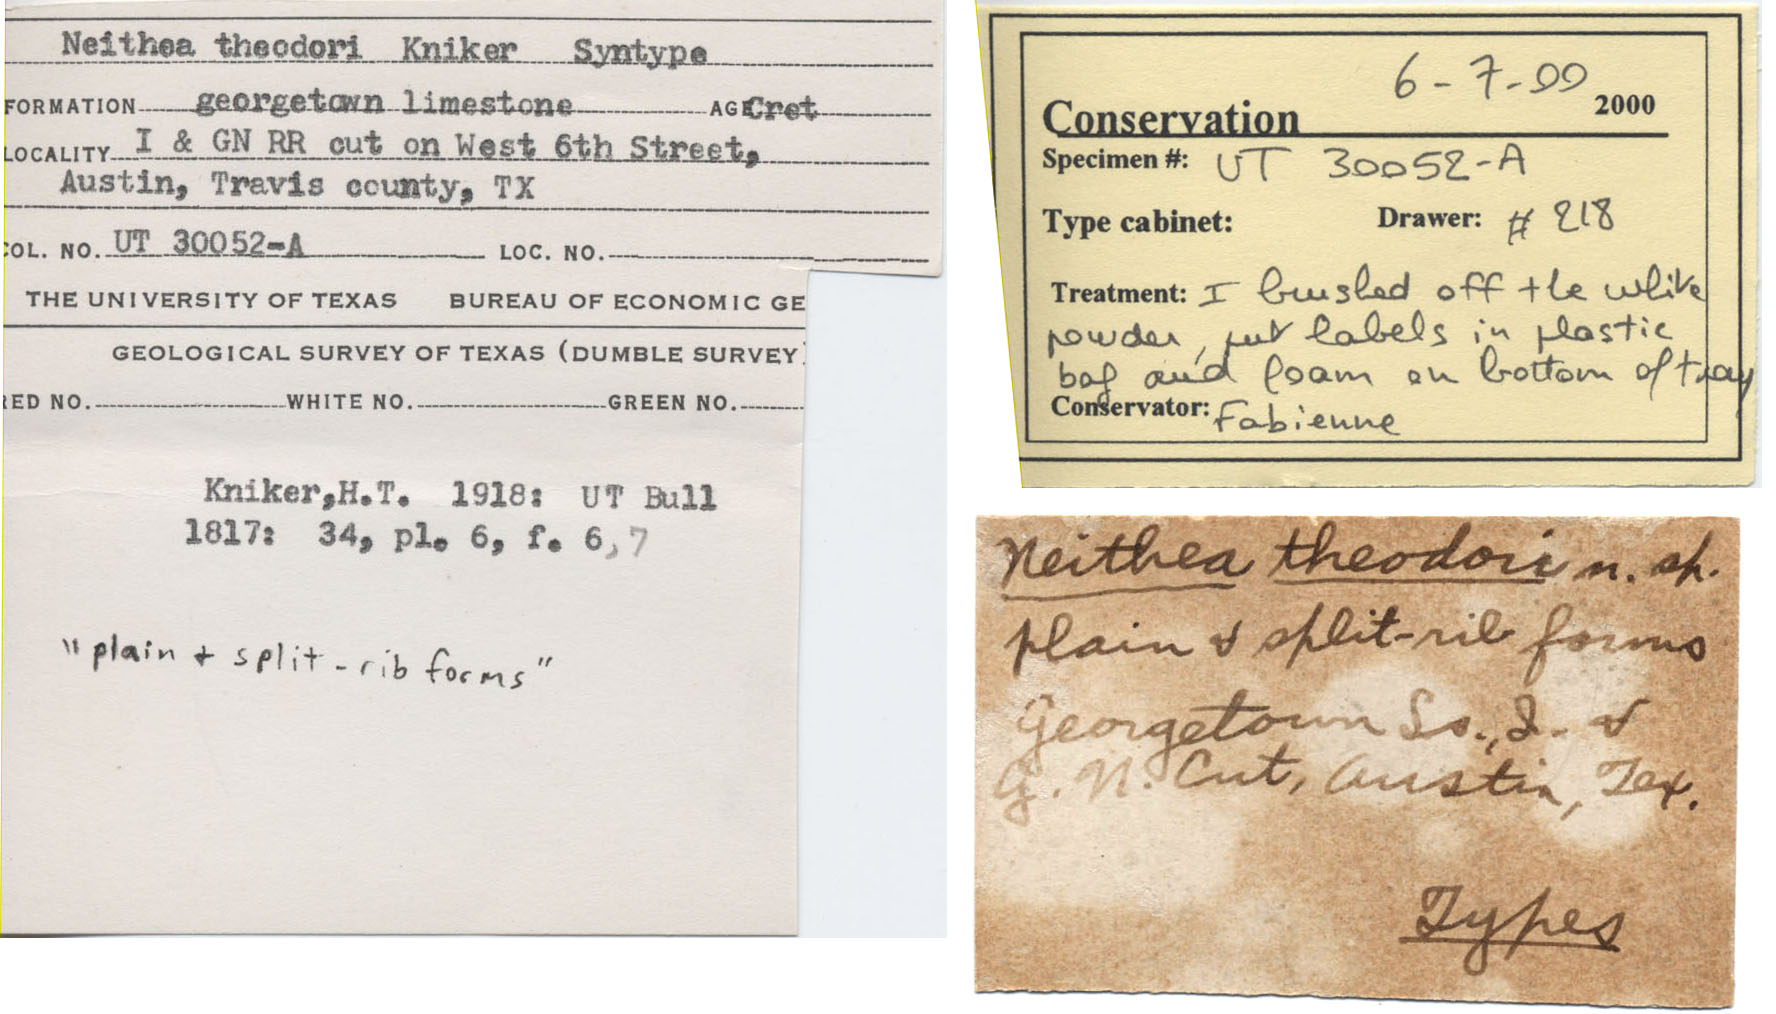 Neithea theodori Kniker Syntype
FORMATION georgetown limestone AGE Cret
LOCALITY I & GN RR cut on West 6th Street,
Austin, Travis county, TX
COL. NO. UT 30052-A LOC. NO.
THE UNIVERSITY OF TEXAS BUREAU OF ECONOMIC GE
GEOLOGICAL SURVEY OF TEXAS (DUMBLE SURVEY)
RED NO. WHITE NO. GREEN NO.
Kniker,H.T. 1918: UT Bull
1817: 34, pl. 6, f. 6,7
"plain + split-rib forms"
6-7-00
Conservation 2000
Specimen #: UT 30052-A
Type cabinet: Drawer: # 218
Treatment: I brushed off the white
powder, put labels in plastic
bag and foam on bottom of tray
Conservator: Fabienne
Neithea theodori n. sp.
plain & split-rib forms
Georgetown Ls., I. &
G. N. Cut, Austin, Tex.
Types